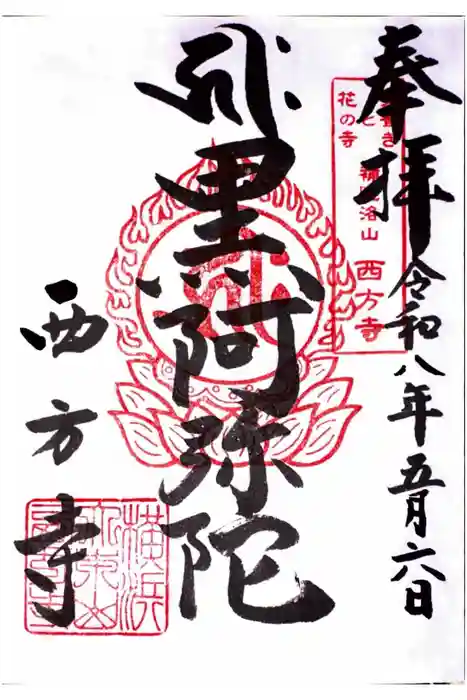 奉拝
令和八年五月六日
花の寺
補陀洛山
西方寺
黒阿弥陀
西方寺
横浜